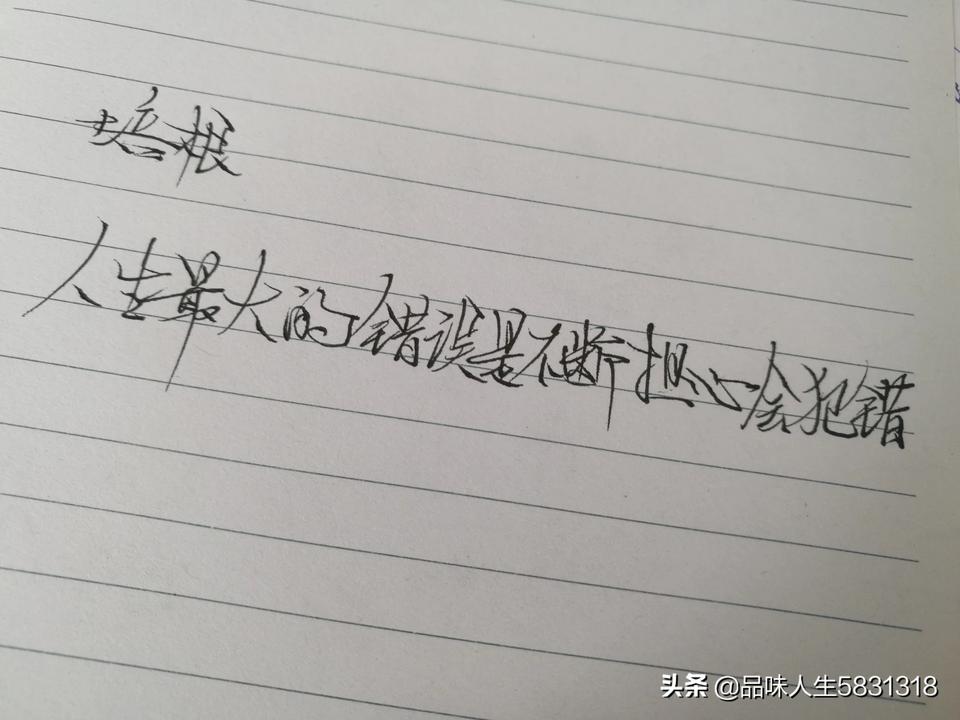 培根
人生最大的错误是不断担心会犯错
头条 @品味人生5831318